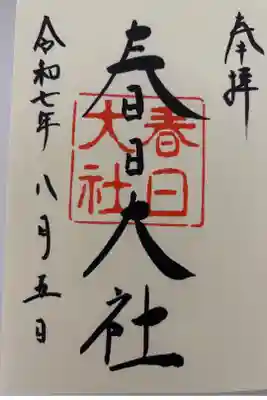 奉拝
春日大社
春日大社
令和七年八月五日